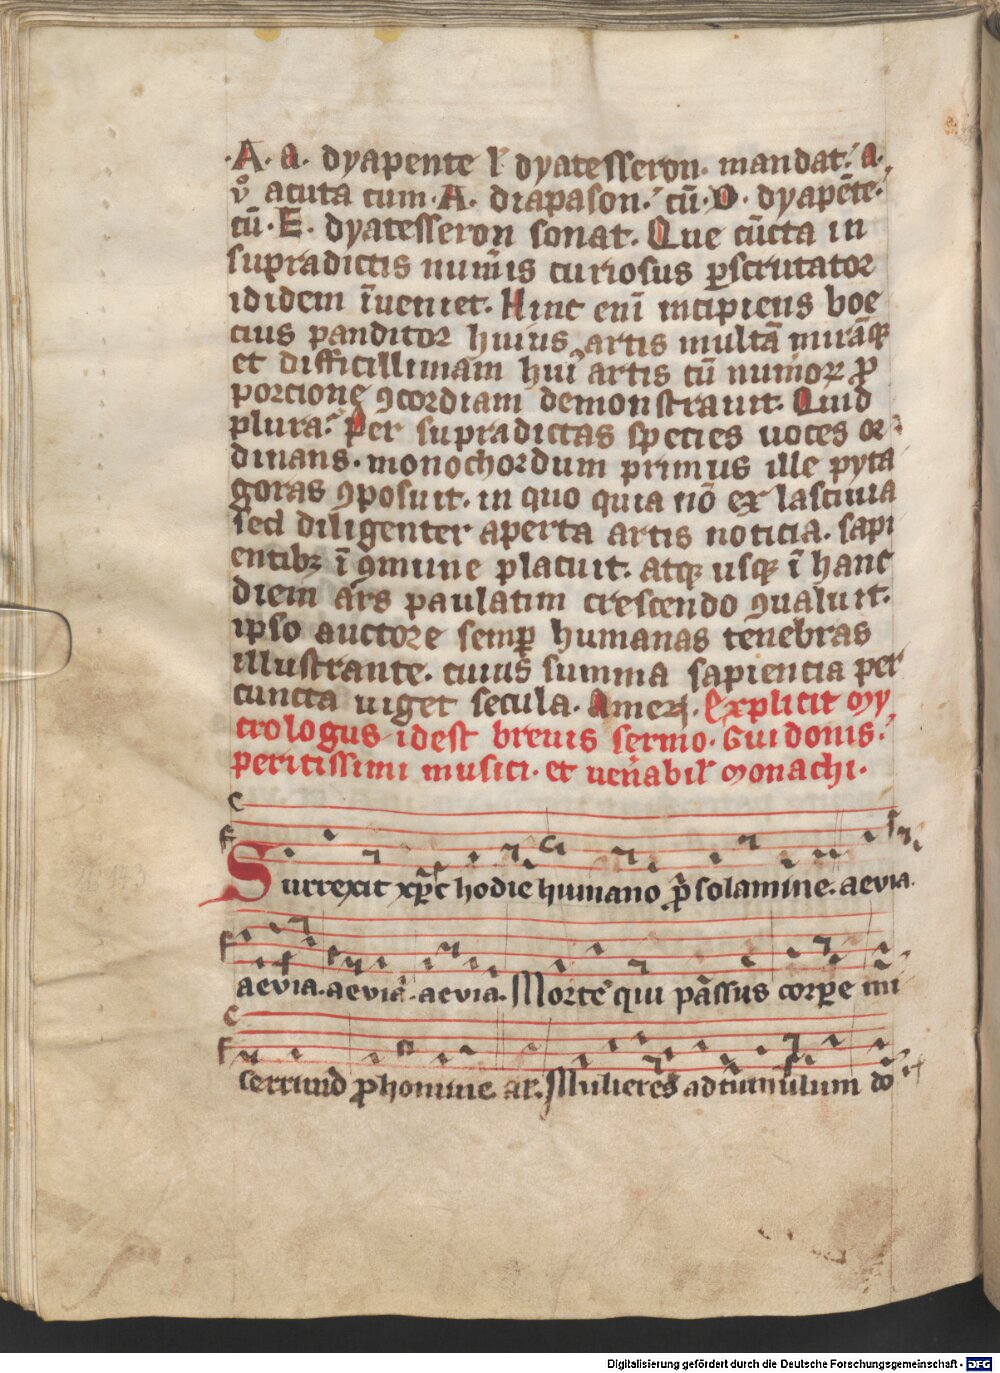 ·A· a· dyapente ł dyatesseron· mandat· a·
v̊ acuta cum· A· diapason· cū· D· dyapēte·
cū· E· dyatesseron sonat· Que cūcta in
supradictis num̄is curiosus ꝑscrutator
ididem īueniet· Hinc eni̅ incipiens boe
cius panditor huius artis multā mirāqꝫ
et difficillimam huiꝰ artis cū numoꝝ ꝓ
porcione ꝯcordiam demonstrauit· Quid
plura? Per supradictas species uoces or
dinans· monochordum primus ille pyta
goras ꝯposuit· in quo quia nō ex lasciuia
sed diligenter aperta artis noticia· sapi
entibꝫ ī ꝯmune placuit· atqꝫ usqꝫ ī hanc
diem ars paulatim crescendo ꝯualuit·
ipso auctore semꝑ humanas tenebras
illustrante· cuius summa sapiencia per
cuncta uiget secula· Amen· Explicit my
crologus idest breuis sermo· Guidonis·
peritissimi musici· et uen̄abil̄ monachi·
C
F
Surrexit xp̄c hodie humano ꝓ solamine· aevia·
F
aevia· aevia· aevia· Mortē qui passus corꝑe mi
C
F
serrimo ꝓ homine ar· Mulieres ad tumulum do
Digitalisierung gefördert durch die Deutsche Forschungsgemeinschaft - DFG